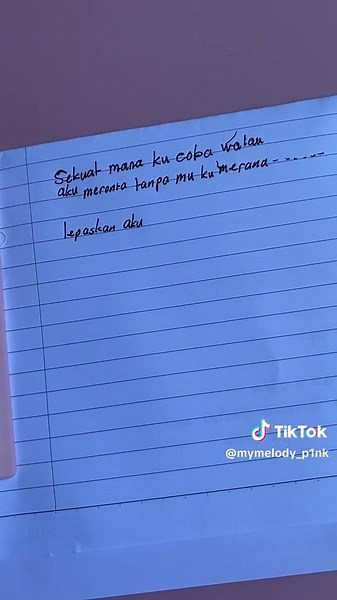 Sekuat mana ku coba walau
aku meronta tanpa mu ku merana - - . . . - -
lepaskan aku
TikTok
@mymelody_p1nk